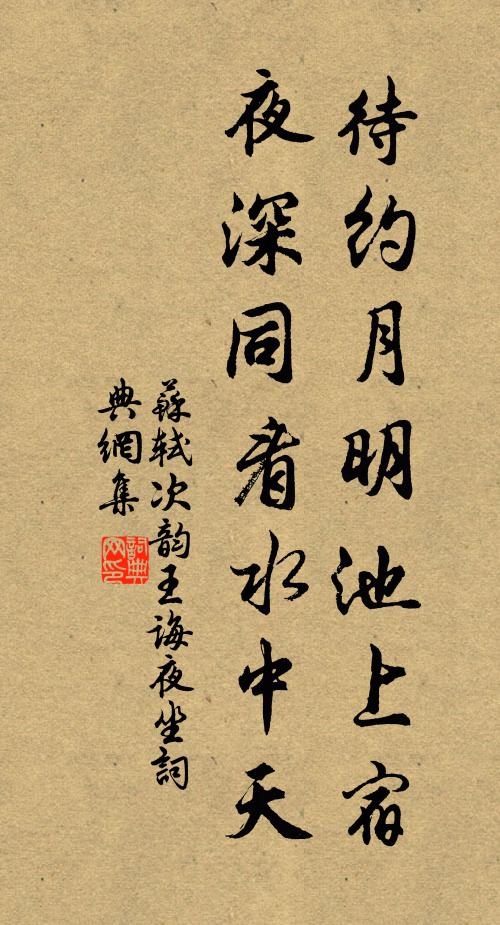 待约月明池上宿
夜深同看水中天
蘇軾次韵王诲夜坐詞
典網集
詞典网印